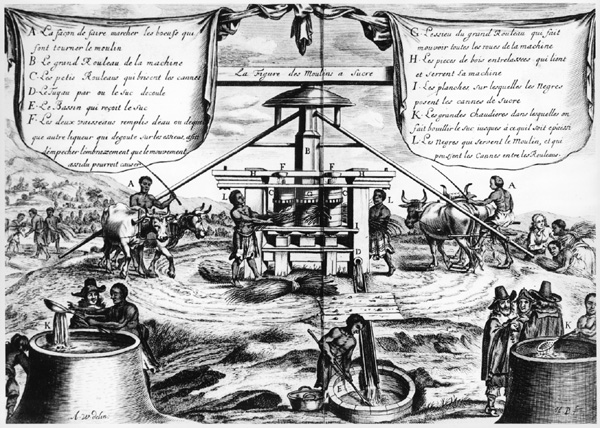 A La façon de faire marcher les boeufs qui
font tourner le moulin
B Le grand Rouleau de la machine
C Les petis Rouleaus qui brisent les cannes
D Le tuyau par ou le suc decoule
E Le Bassin qui reçoit le suc
F Les deux vaisseaus remplis deau ou de quel
que autre liqueur qui degoute sur les essieus, afin
dempecher lembrasement que le mouvement
assidu pourroit causer
La Figure des Moulins a Sucre
G Lessieu du grand Rouleau qui fait
mouvoir toutes les roues de la machine
H Les pieces de bois entrelassées qui lient
et serrent la machine
I Les planches sur lesquelles les Negres
posent les cannes de Sucre
K Les grandes chaudieres dans lesquelles on
fait bouillir le suc jusques a ce quil soit epaissi
L Les Negres qui servent le Moulin, et qui
poussent les Cannes entre les Rouleaus
A
G
B
H F F H
A
C
L
L
I
D
K
K
E
A.W delin.